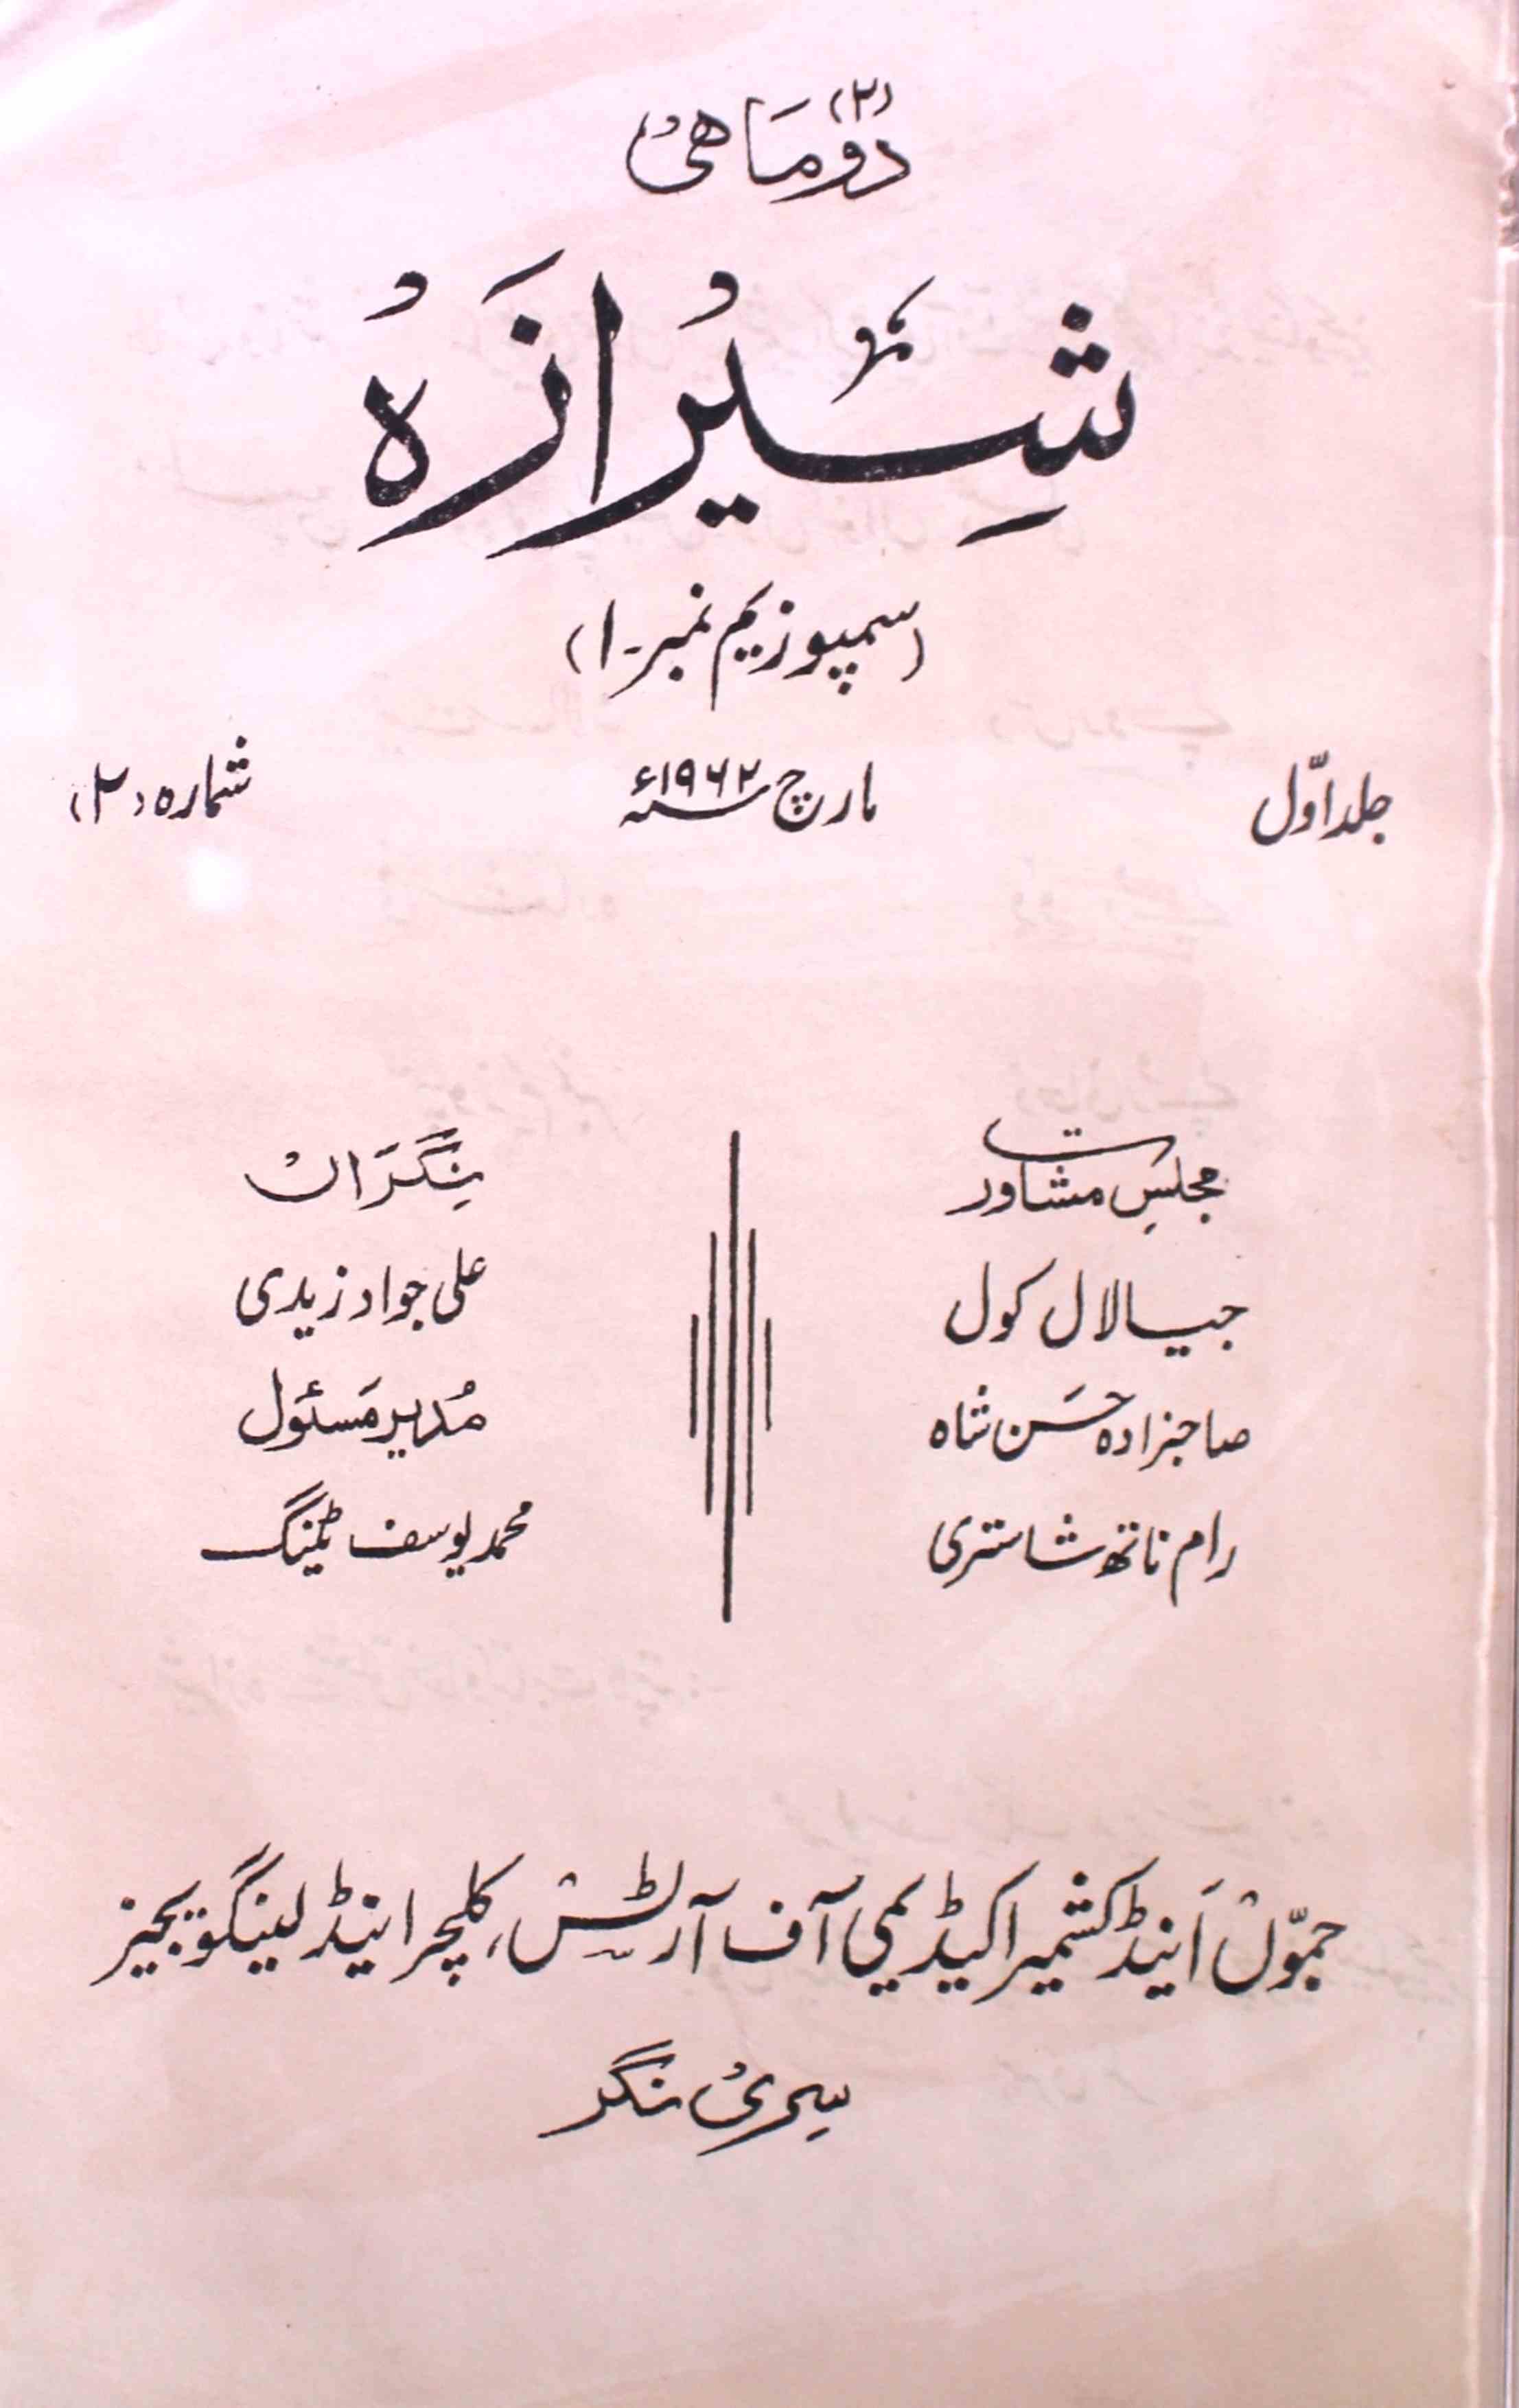 (۲)
دو ماہی
شیرازہ
(سمپوزیم نمبر-۱)
جلد اوّل
مارچ ۱۹۶۲ء
شمارہ (۲)
مجلسِ مشاورت
جیالال کول
صاحبزادہ حسَن شاہ
رام ناتھ شاستری
نِگَرَاں
علی جواد زیدی
مُدیر مَسئول
محمد یوسف ٹینگ
جموّں اَینڈ کشمیر اکیڈیمی آف آرٹس، کلچر اینڈ لینگویجیز
سِری نگر